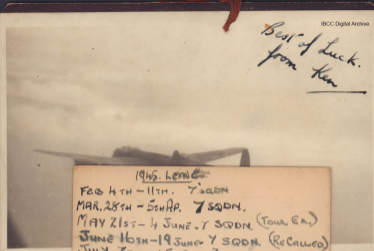 IBCC Digital Archive
Best of Luck.
from Ken
1945. LEAVE
FEB 4TH - 11TH. 7 SQDN
MAR. 28TH - 5TH AP. 7 SQDN.
MAY 21ST - 4 JUNE. 7 SQDN. (Tour Ex.)
JUNE 16TH - 19 JUNE 7 SQDN. (ReCALLED)